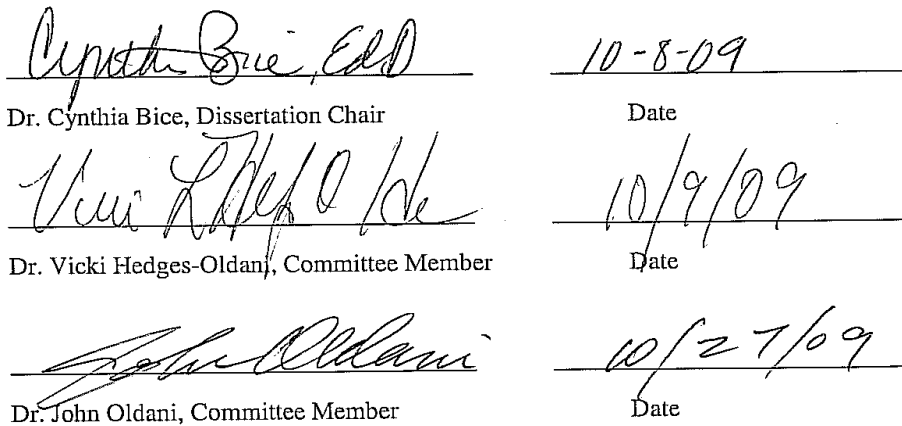 Cynthia Bice, EdD 10-8-09
Dr. Cynthia Bice, Dissertation Chair Date
10/9/09
Dr. Vicki Hedges-Oldani, Committee Member Date
John Oldani 10/27/09
Dr. John Oldani, Committee Member Date